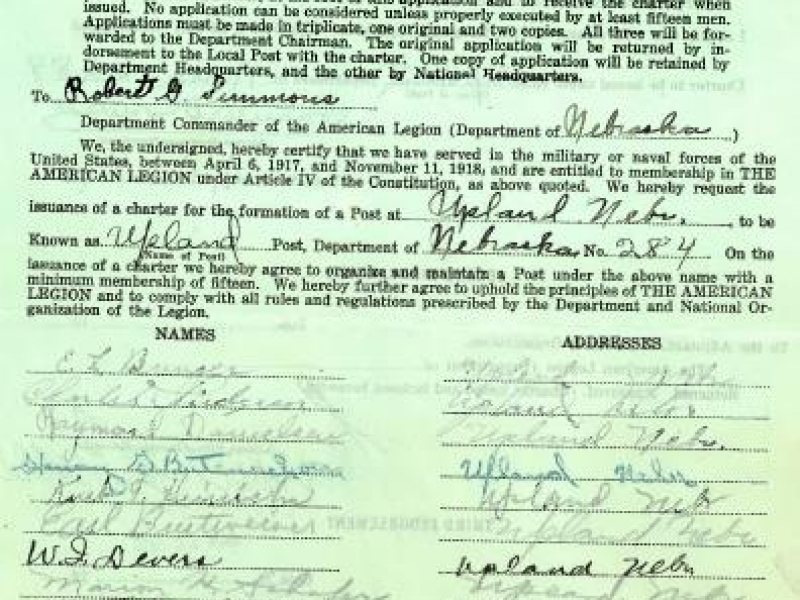 issued. No application can be considered unless properly executed by at least fifteen men.
Applications must be made in triplicate, one original and two copies. All three will be for-
warded to the Department Chairman. The original application will be returned by in-
dorsement to the Local Post with the charter. One copy of application will be retained by
Department Headquarters, and the other by National Headquarters.
To Robert G. Simmons
Department Commander of the American Legion (Department of Nebraska)
We, the undersigned, hereby certify that we have served in the military or naval forces of the
United States, between April 6, 1917, and November 11, 1918, and are entitled to membership in THE
AMERICAN LEGION under Article IV of the Constitution, as above quoted. We hereby request the
issuance of a charter for the formation of a Post at Upland Nebr. , to be
Known as Upland Post, Department of Nebraska No. 284 On the
(Name of Post)
issuance of a charter we hereby agree to organize and maintain a Post under the above name with a
minimum membership of fifteen. We hereby further agree to uphold the principles of THE AMERICAN
LEGION and to comply with all rules and regulations prescribed by the Department and National Or-
ganization of the Legion.
NAMES ADDRESSES
E. L.
Upland Nebr
Raymond Danielson Upland Nebr.
Upland Nebr
Upland Nebr
Earl Upland Nebr
W. I. Devers Upland Nebr
Marion